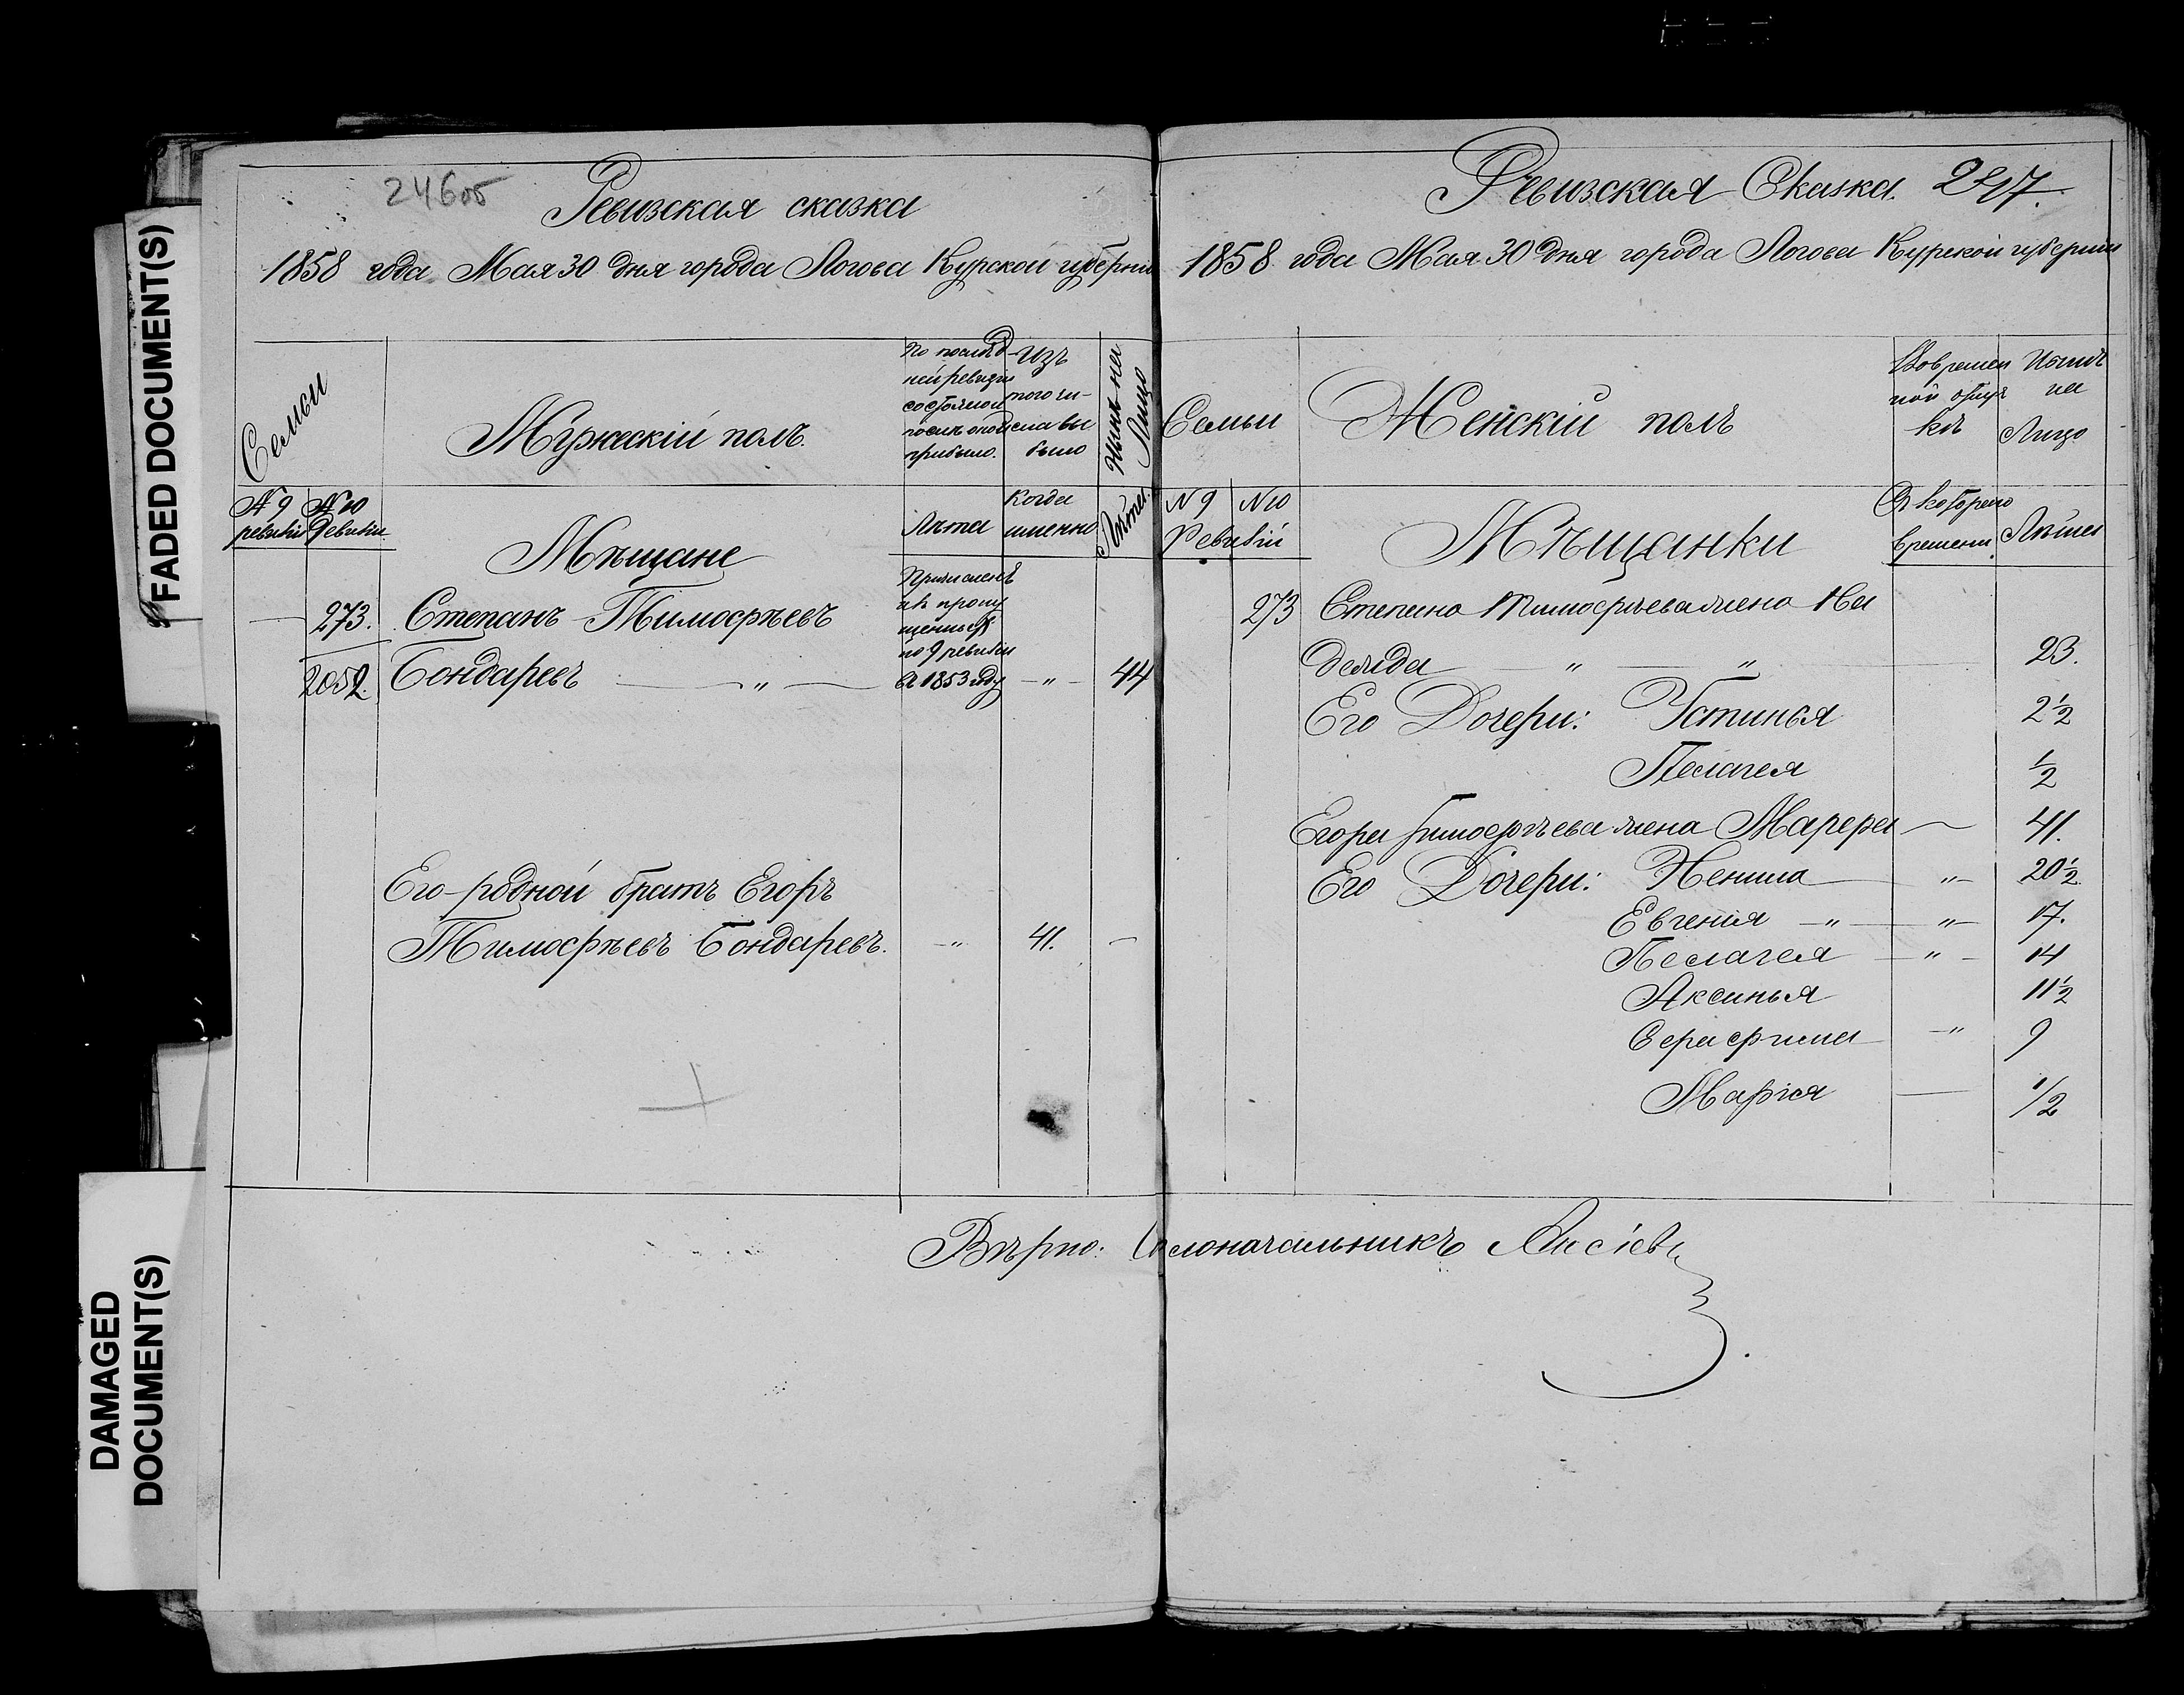 FADED DOCUMENT(S)
DAMAGED
DOCUMENT(S)
246об
Ревизская сказка
1858 года Мая 30 дня города Льгова Курской губерніи
Семьи
Мужескій полъ.
По послѣд-
ней ревизіи
состояло и
послѣ оной
прибыло.
Изъ
того чи-
сла вы
было
Нынѣ на
Лицо
№ 9 № 10
ревизіи Ревизіи
Мѣщане
Лѣта
Когда
именно
Лѣта.
273. Степанъ Тимофѣевъ
2052. Бондаревъ — " —
Причислен
по 9 ревизіи
въ 1853 году — " — 44
Его родной братъ Егоръ
Тимофѣевъ Бондаревъ. — " 41. —
Ревизская Сказка. 247.
1858 года Мая 30 дня города Льгова Курской губерніи
Семьи
Женскій полъ
Во времен
ной отлуч
кѣ
Нынѣ
на
Лицо
№ 9 № 10
Ревизіи
Мѣщанки
Съ котораго
времени.
Лѣта
273 Степана Тимофѣева жена На
дежда — " — " — 23.
Его Дочери: Устинья 2½
Пелагея ½
Егора Тимофѣева жена Марфа — 41.
Его Дочери: Ненила — " — 20½
Евгенія — " — " — 17.
Пелагея — " — 14
Аксинья 11½
Серафима — " 9
Марія — 1/2
Вѣрно: Столоначальникъ